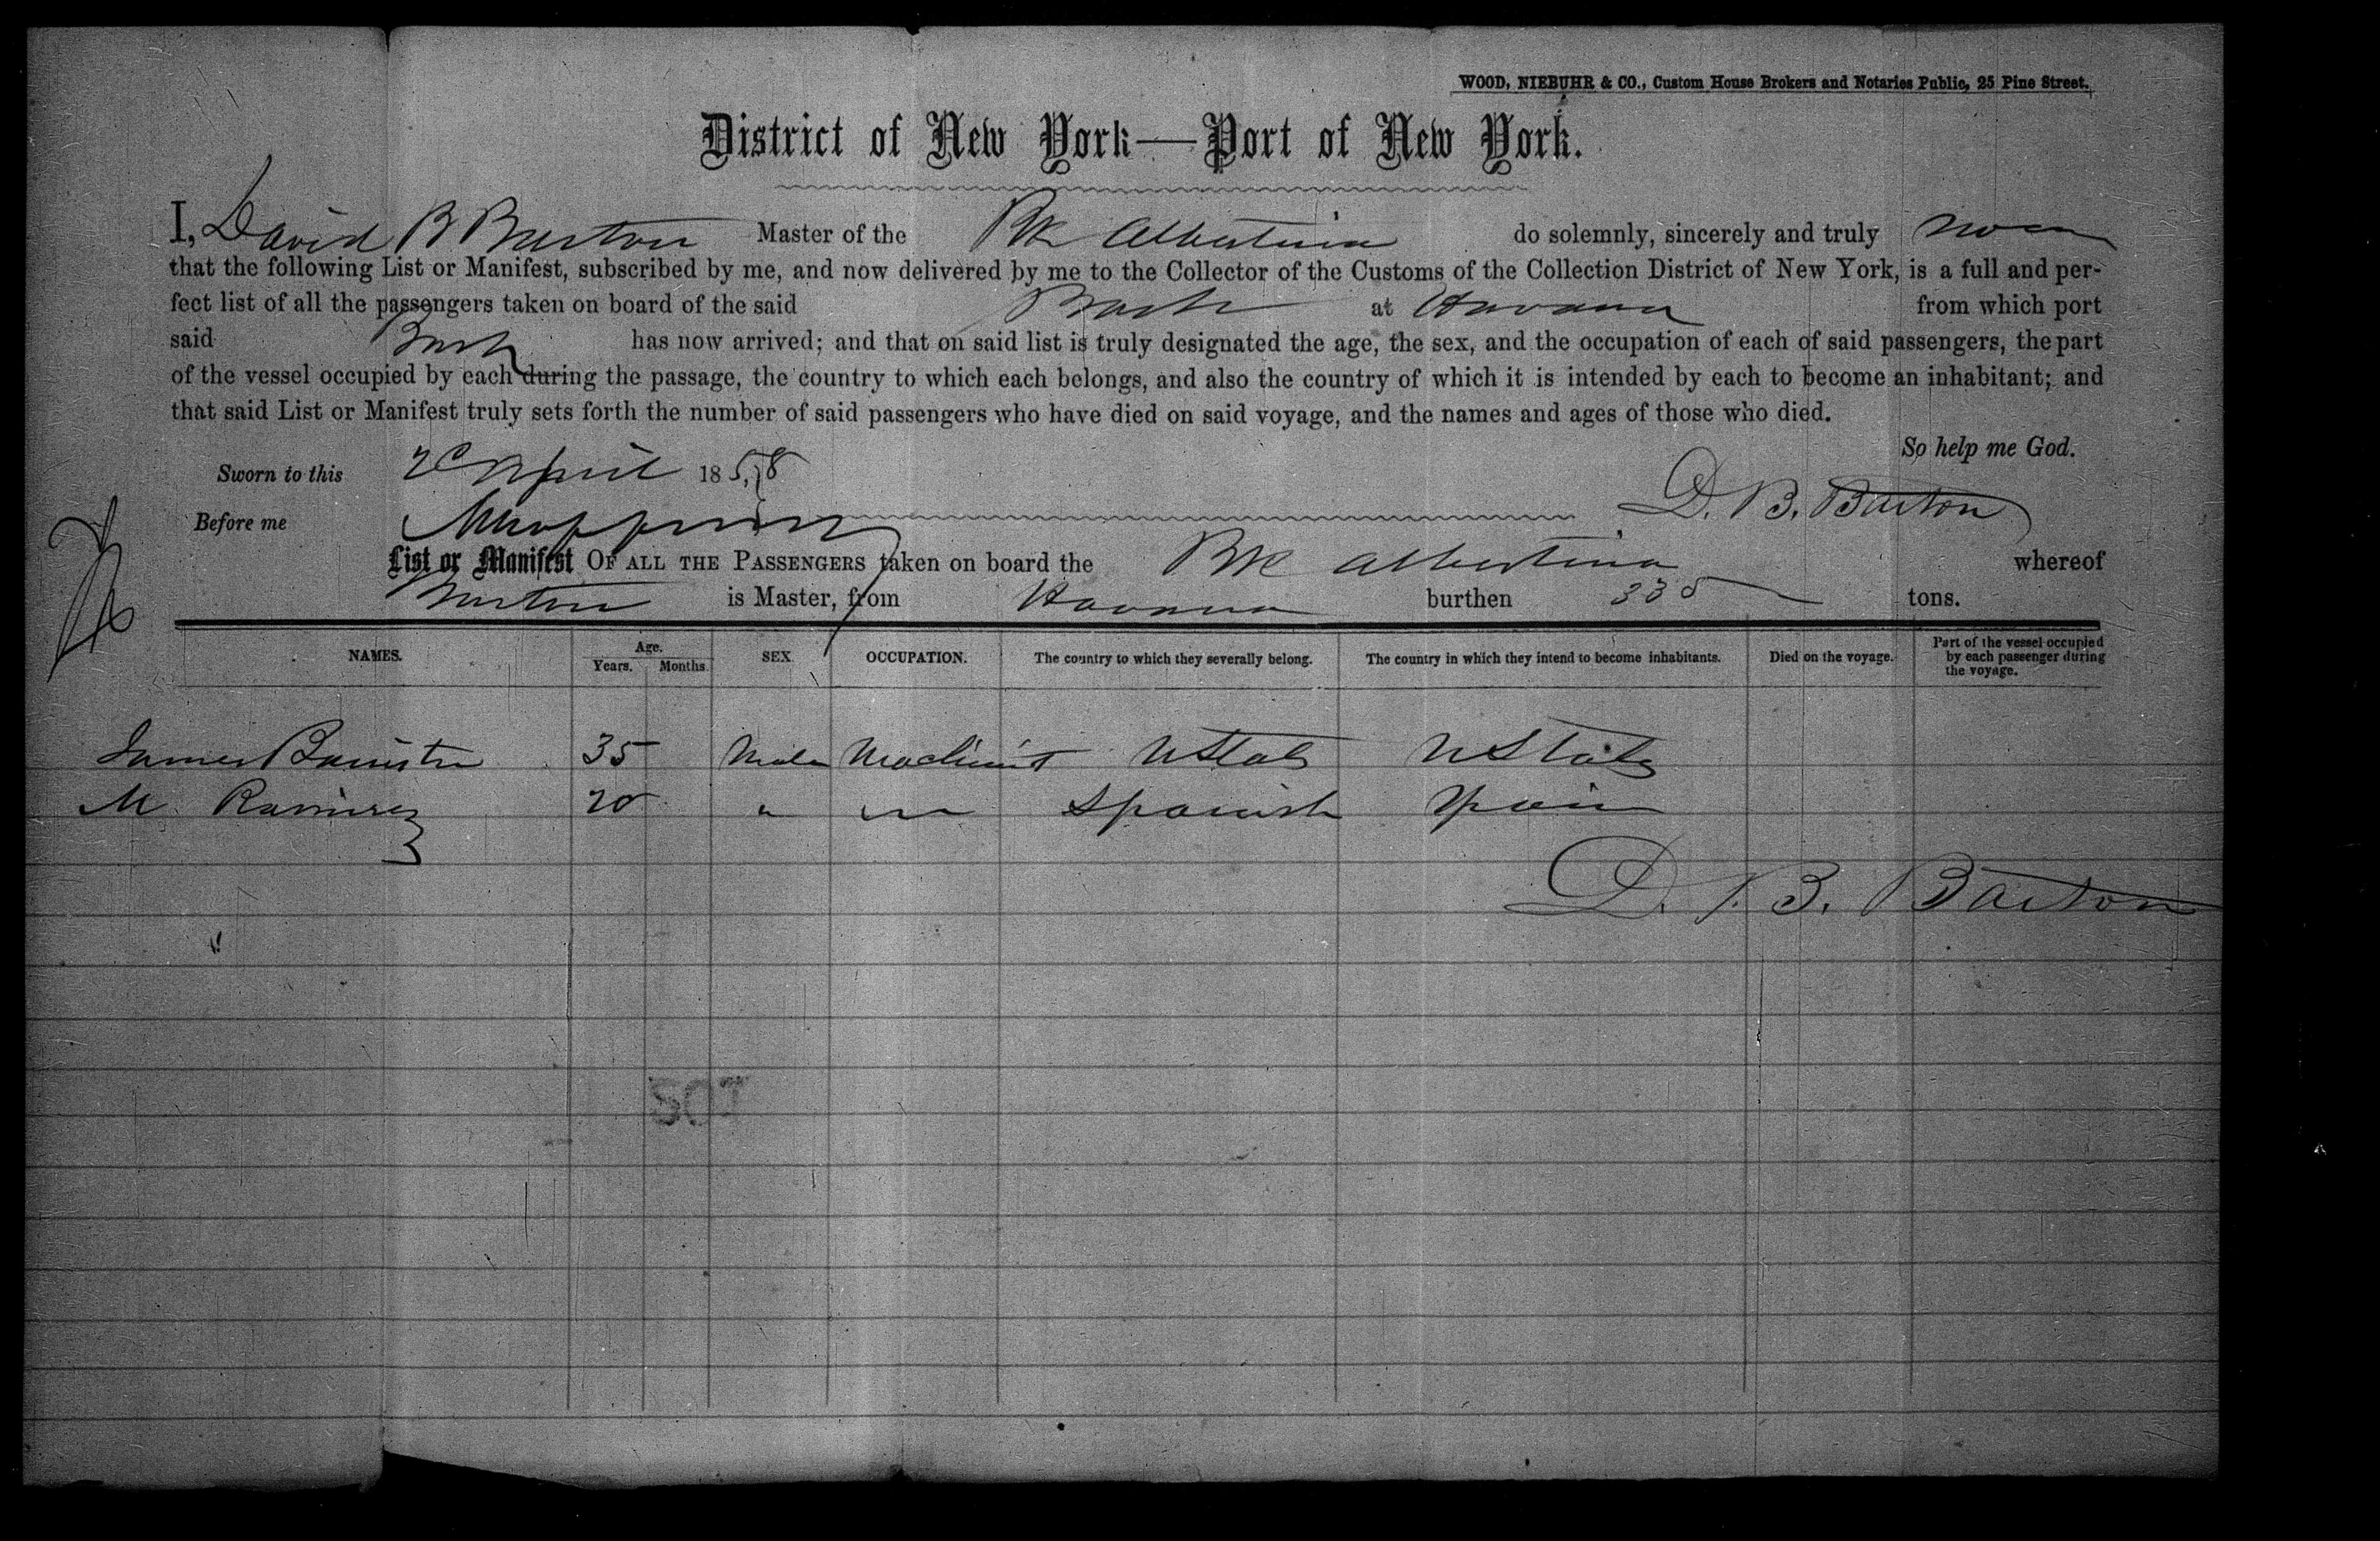 WOOD, NIEBUHR & CO., Custom House Brokers and Notaries Public, 25 Pine Street.
District of New York—Port of New York.
I, David B Barton Master of the Bk Albertina do solemnly, sincerely and truly
that the following List or Manifest, subscribed by me, and now delivered by me to the Collector of the Customs of the Collection District of New York, is a full and per-
fect list of all the passengers taken on board of the said Bark at Havana from which port
said Bark has now arrived; and that on said list is truly designated the age, the sex, and the occupation of each of said passengers, the part
of the vessel occupied by each during the passage, the country to which each belongs, and also the country of which it is intended by each to become an inhabitant; and
that said List or Manifest truly sets forth the number of said passengers who have died on said voyage, and the names and ages of those who died.
So help me God.
Sworn to this April 1858
Before me D. B. Barton
List or Manifest OF ALL THE PASSENGERS taken on board the Bk Albertina whereof
Barton is Master, from Havana burthen tons.
NAMES. Age. Years. Months. SEX. OCCUPATION. The country to which they severally belong. The country in which they intend to become inhabitants. Died on the voyage. Part of the vessel occupied by each passenger during the voyage.
James Banister 35 Male Machinist U States U States
M. Ramirez 20 " Spanish Spain
D. B. Barton